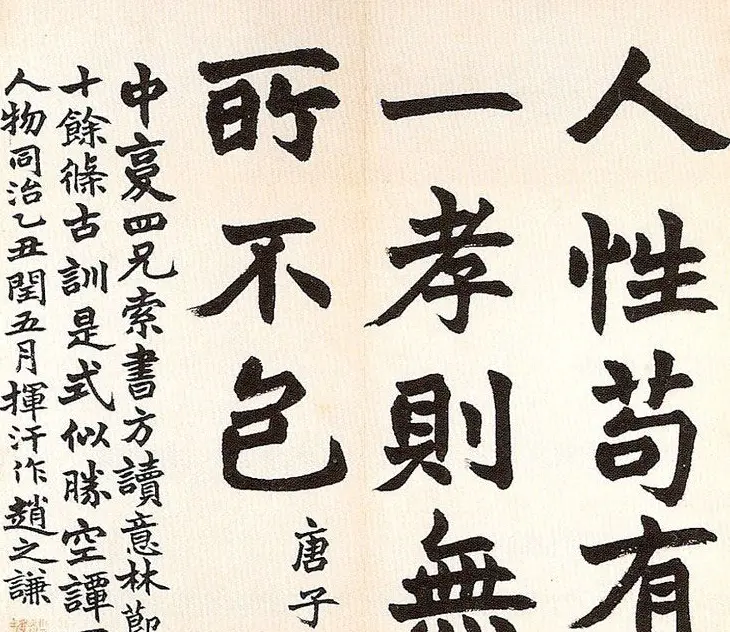 人性苟有
一孝則無
所不包
唐子
中夏四兄索書方讀意林節
十餘條古訓是式似勝空譚
人物同治乙丑閏五月揮汗作趙之謙